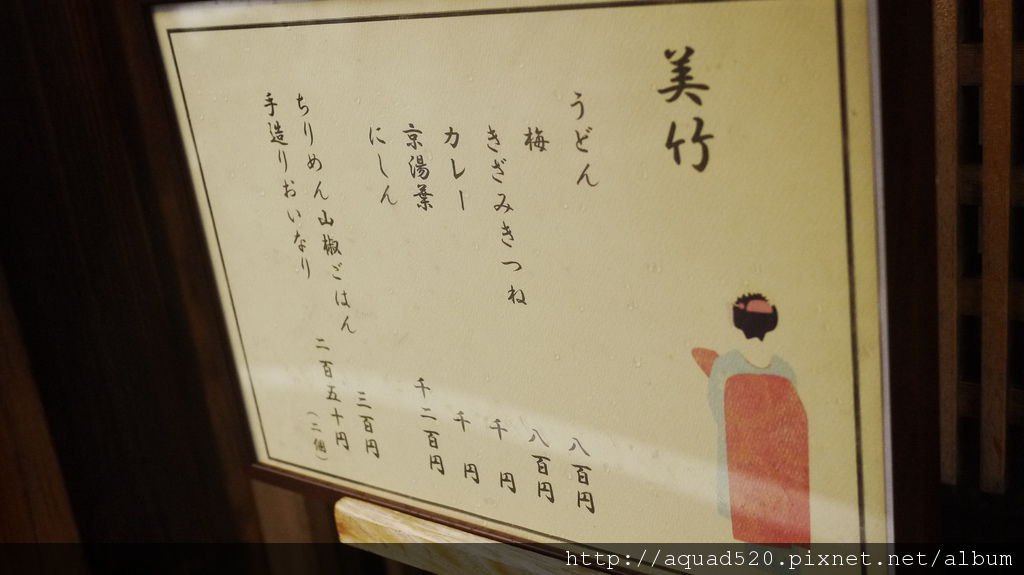 美竹
うどん
梅 八百円
きざみきつね 八百円
カレー 千円
京湯葉 千円
にしん 千二百円
ちりめん山椒ごはん 三百円
手造りおいなり 二百五十円
(二個)
http://aquad520.pixnet.net/album